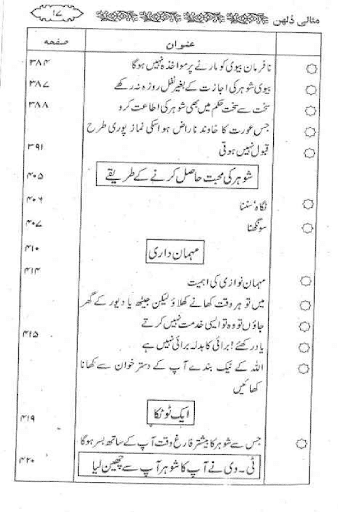 مثالی دُلھن ۱۷
عنوان صفحه
نافرمان بیوی کو مارنے پر مواخذہ نہیں ہوگا ۳۸۴
بیوی شوہر کی اجازت کے بغیر نفل روزہ نہ رکھے ۳۸۷
سخت سے سخت حکم میں بھی شوہر کی اطاعت کرو ۳۸۸
جس عورت کا خاوند ناراض ہو اسکی نماز پوری طرح
قبول نہیں ہوتی ۳۹۱
شوہر کی محبت حاصل کرنے کے طریقے ۴۰۵
نگاہ سننا ۴۰۶
سونگھنا ۴۰۷
مہمان داری ۴۱۰
۴۱۴
مہمان نوازی کی اہمیت
میں تو ہر وقت کھانے کھلاؤ لیکن جیٹھ یا دیور کے گھر
جاؤں تو وہ تو ایسی خدمت نہیں کرتے
یاد رکھئے! برائی کا بدلہ برائی نہیں ہے ۴۱۵
اللہ کے نیک بندے آپ کے دستر خوان سے کھانا
کھائیں
ایک ٹوٹکا ۴۱۹
جس سے شوہر کا بیشتر فارغ وقت آپ کے ساتھ بسر ہوگا
ٹی۔وی نے آپ کا شوہر آپ سے چھین لیا ۴۲۰